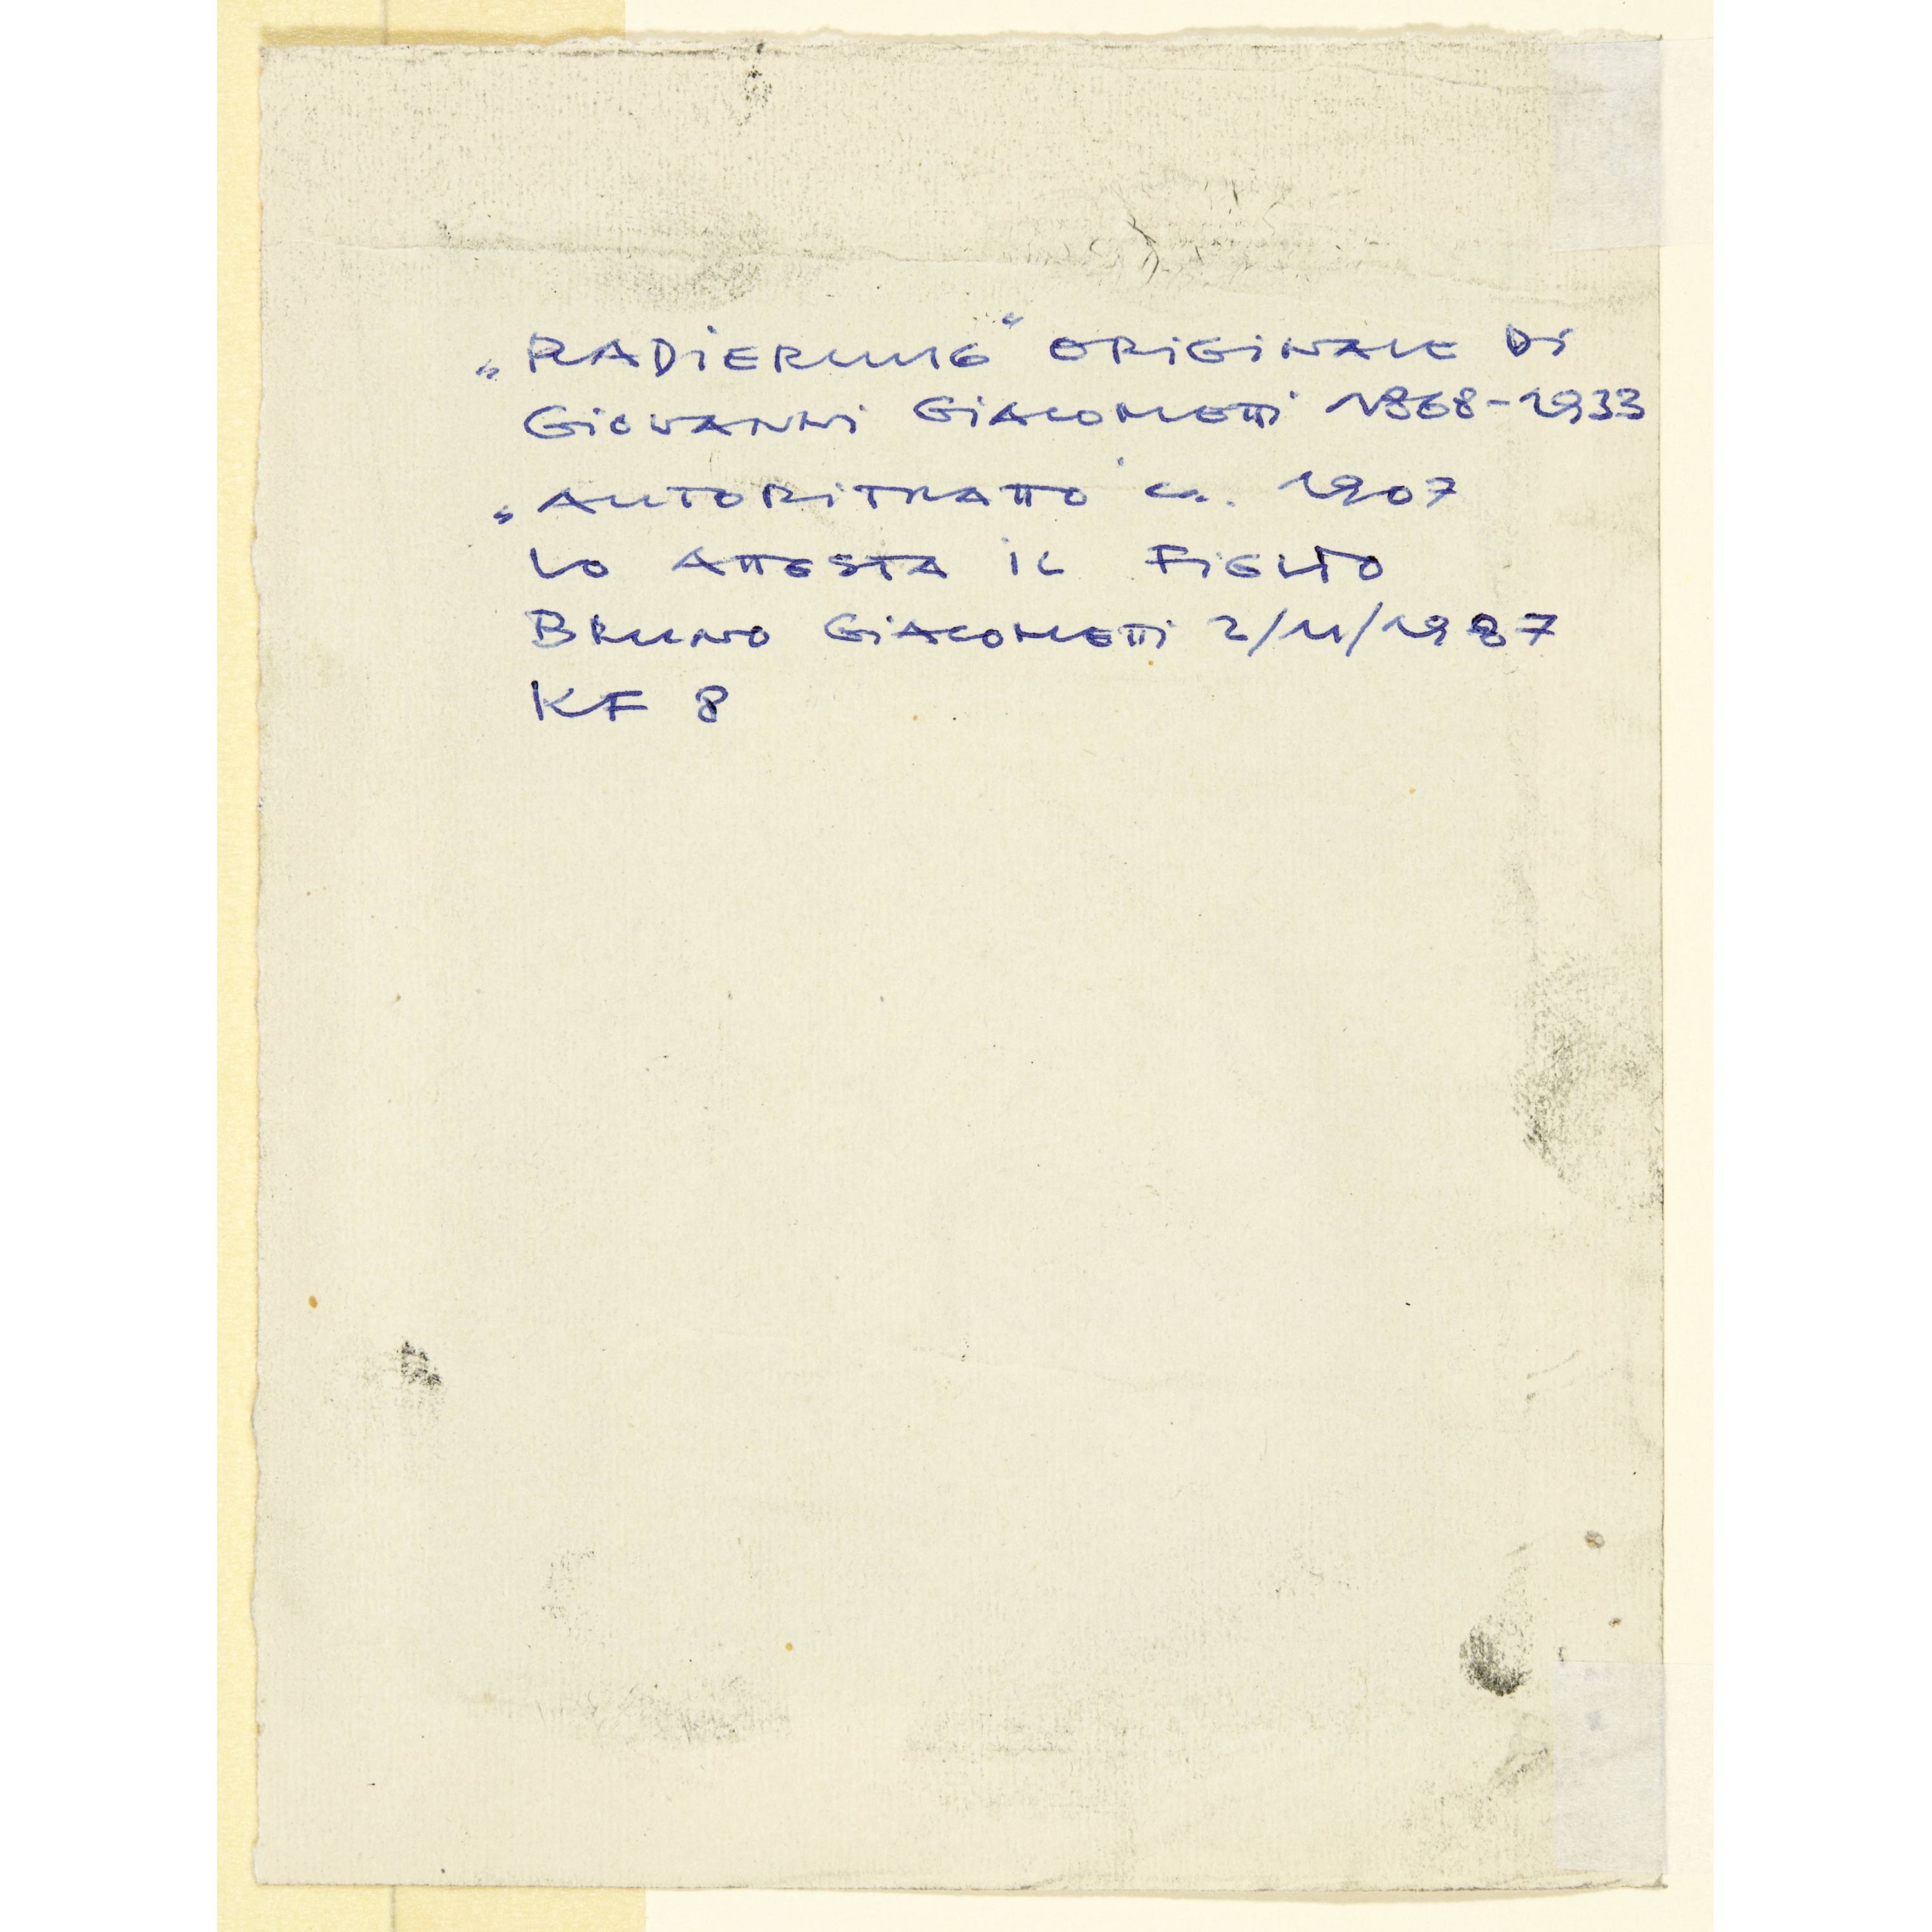 „RADiERUNG“ ORiGiNALE Di
GiOVANNi GiACOMETTi 1868-1933
„AUTORiTRATTO“ ca. 1907
LO ATTESTA iL FiGLIO
BRUNO GiACOMETTi 2/11/1987
KF 8